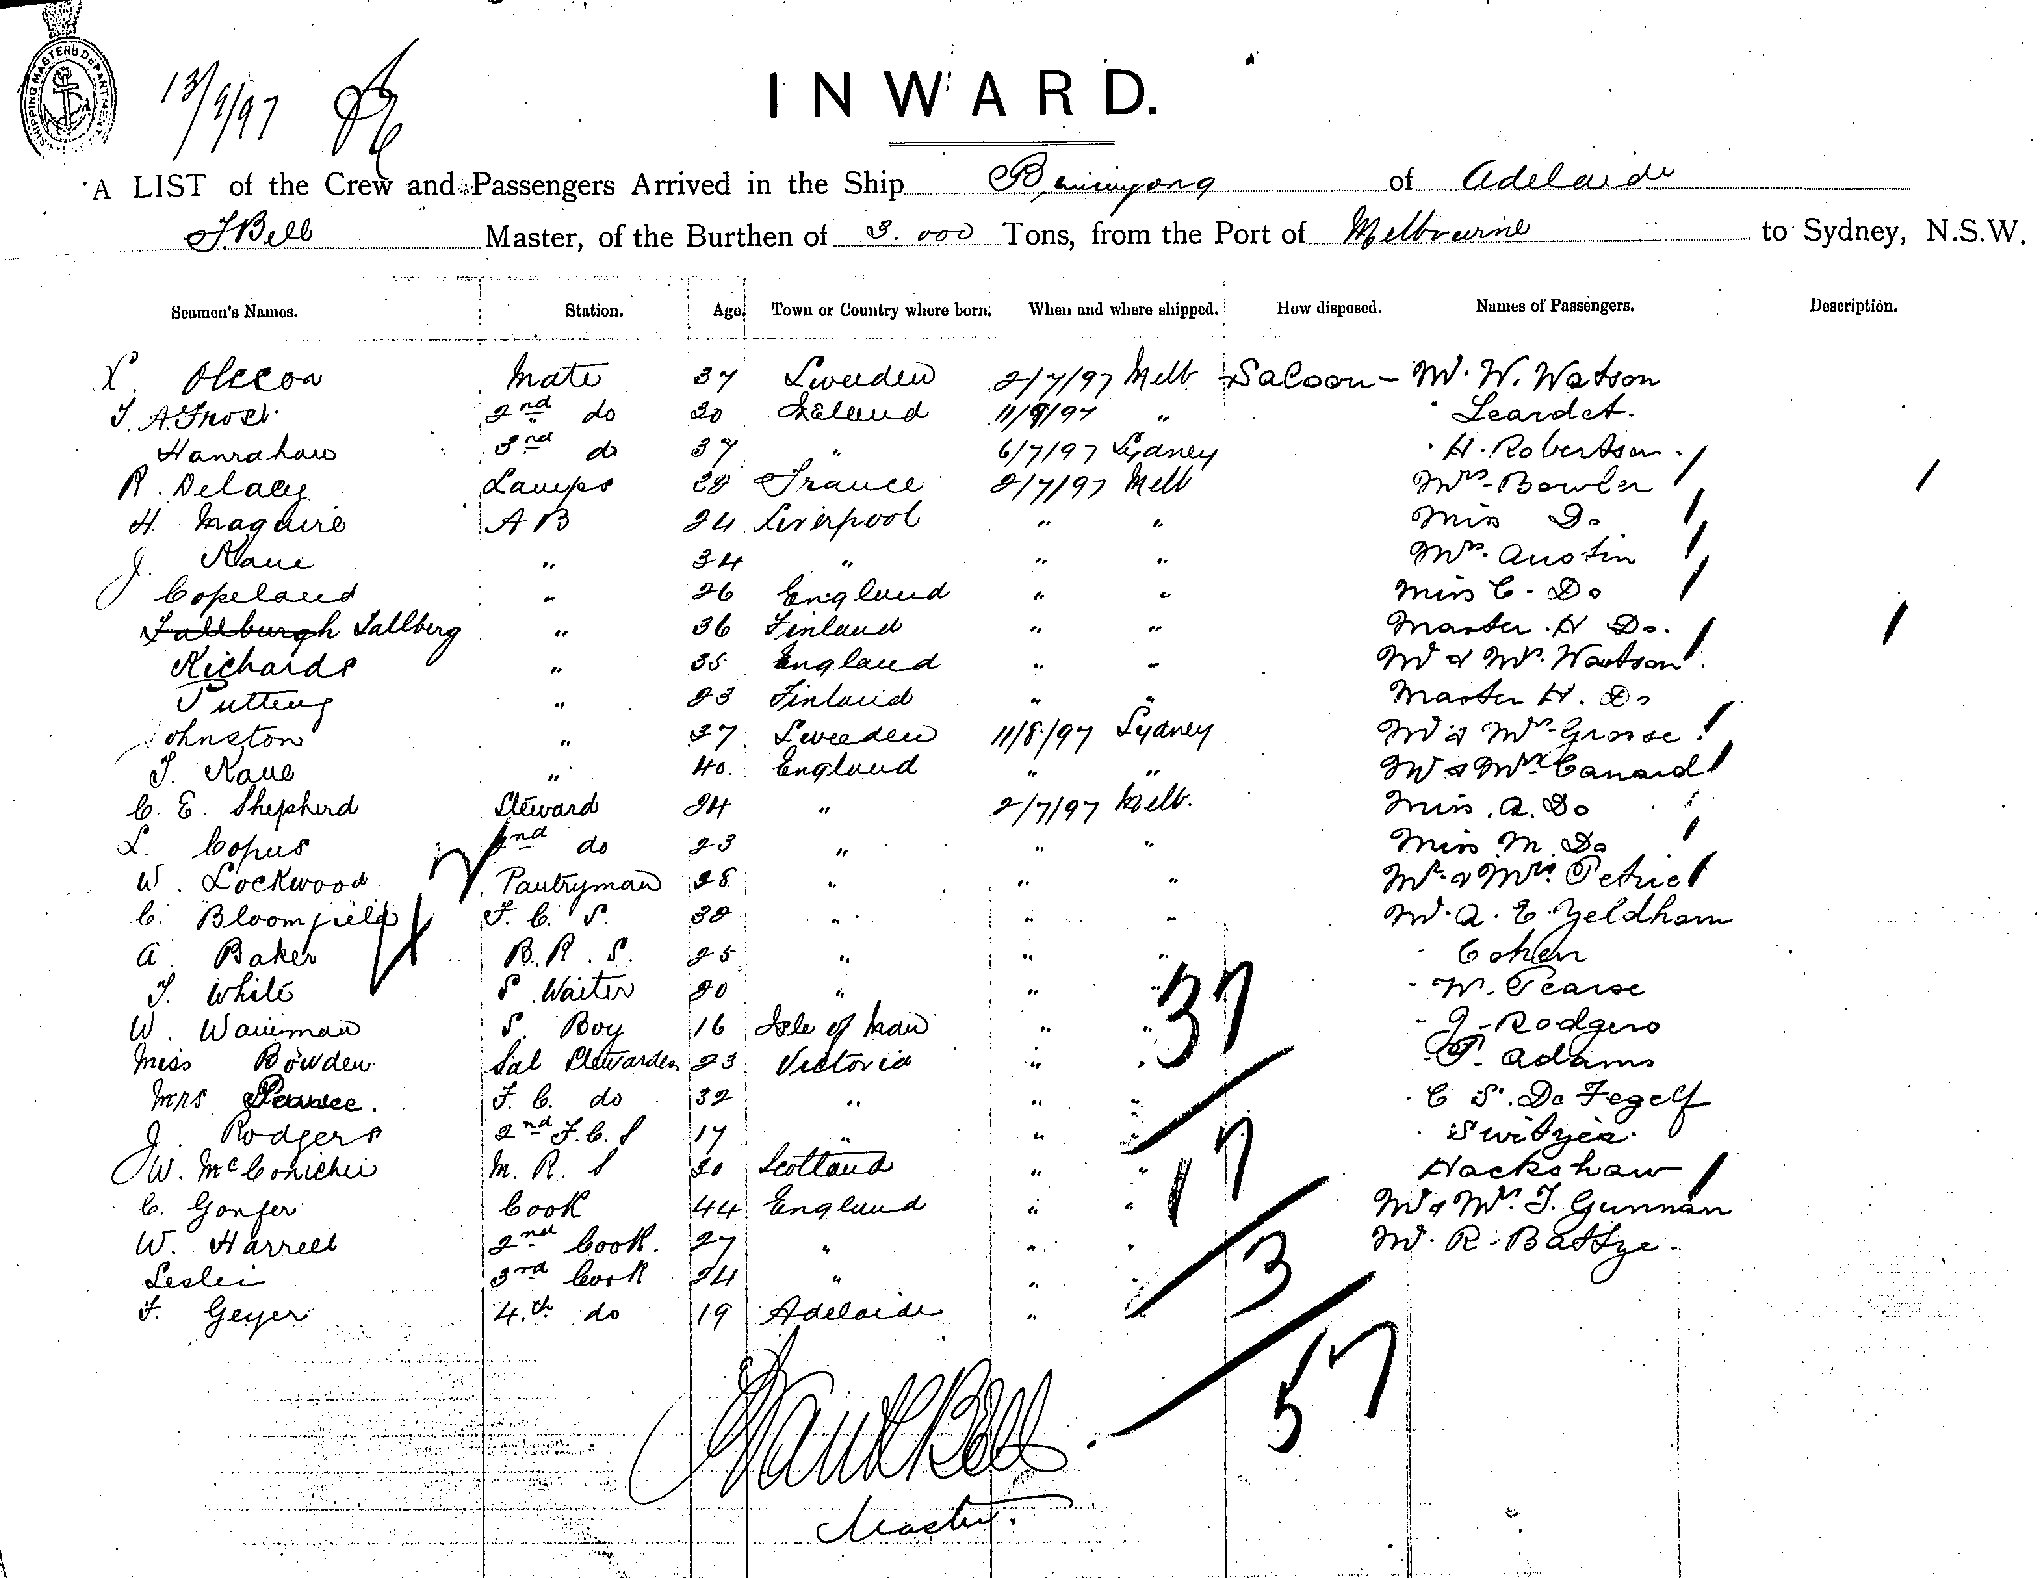 SHIPPING MASTERS DEPARTMENT
13/9/97
INWARD.
A LIST of the Crew and Passengers Arrived in the Ship Buninyong of Adelaide
F Bell Master, of the Burthen of 3.000 Tons, from the Port of Melbourne to Sydney, N.S.W.
Seamen's Names. Station. Age. Town or Country where born. When and where shipped. How disposed. Names of Passengers. Description.
Oleson Mate 37 Sweeden 2/7/97 Melb Saloon - Mr. W. Watson
T. A. Frost 2nd do 30 Ireland 11/9/97 " " Leardet.
Hanrahan 3rd do 37 " 6/7/97 Sydney " H. Robertson.
R. Delacy Lamps 28 France 2/7/97 Melb Mrs. Bowler
H. Maguire A B 24 Liverpool " " Miss Do
J. Kane " 34 " " " Mrs. Austin
Copeland " 26 England " " Miss C. Do
Tallburgh Tallberg " 36 Finland " " Master. H Do.
Richards " 35 England " " Mr & Mrs. Watson
Putting " 23 Finland " " Master H. Do
Johnston " 37 Sweeden 11/8/97 Sydney Mr & Mrs Grosse
T. Kane " 40. England " " Mr & Mrs Canard
C. E. Shepherd Steward 24 " 2/7/97 Melb. Miss. A. Do
L. Copus 2nd do 23 " " " Miss M. Do
W. Lockwood Pantryman 28 " " " Mr & Mrs. Petrie
C. Bloomfield F. C. S. 38 " " " Mr. A. E. Yeldham
A Baker B. R. S. 25 " " " " Cohen
T. White S. Waiter 20 " " " 37 " W. Pearse
W. Waineman S. Boy 16 Isle of Man " " " J. Rodgers
Miss Bowden Sal Stewardess 23 Victoria " " " P. Adams
Mrs Pearce. F. C. do 32 " " " " C S. De Fegelf
J. Rodgers 2nd F. C. S 17 " " " 17 " Switzer.
W. McConichie M. R. S 30 Scotland " " Hackshaw
C. Gonfer Cook 44 England " " Mr & Mrs. T. Gunnan
W. Harrell 2nd Cook. 27 " " " 3 Mr. R. Battye.
Leslie 3rd Cook 24 " " "
F. Geyer 4.th do 19 Adelaide "
57
Bell
Master.